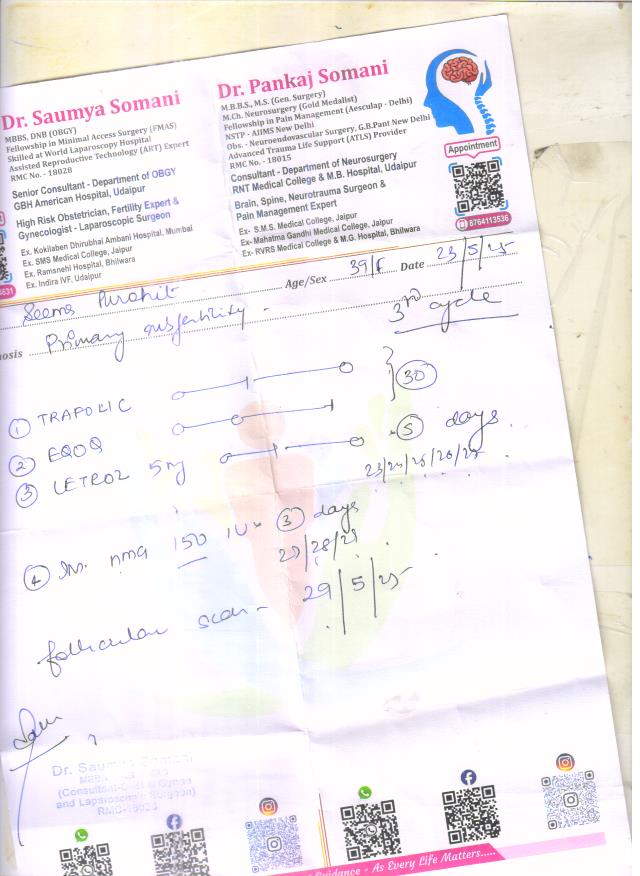 Dr. Saumya Somani
MBBS, DNB (OBGY)
Fellowship in Minimal Access Surgery (FMAS)
Skilled at World Laparoscopy Hospital
Assisted Reproductive Technology (ART) Expert
RMC No. - 18028
Senior Consultant - Department of OBGY
GBH American Hospital, Udaipur
High Risk Obstetrician, Fertility Expert &
Gynecologist - Laparoscopic Surgeon
Ex. Kokilaben Dhirubhai Ambani Hospital, Mumbai
Ex. SMS Medical College, Jaipur
Ex. Ramanehi Hospital, Bhilwara
Ex. Indira IVF, Udaipur
Dr. Pankaj Somani
M.B.B.S., M.S. (Gen. Surgery)
M.Ch. Neurosurgery (Gold Medalist)
Fellowship in Pain Management (Aesculap - Delhi)
NSTP - AIIMS New Delhi
Obs. - Neuroendovascular Surgery, G.B.Pant New Delhi
Advanced Trauma Life Support (ATLS) Provider
RMC No. - 18015
Consultant - Department of Neurosurgery
RNT Medical College & M.B. Hospital, Udaipur
Brain, Spine, Neurotrauma Surgeon &
Pain Management Expert
Ex- S.M.S. Medical College, Jaipur
Ex- Mahatma Gandhi Medical College, Jaipur
Ex- RVRS Medical College & M.G. Hospital, Bhilwara
Appointment
8764113536
Seema Purohit Age/Sex 39/F Date 23/5/25
nosis Primary infertility 3rd cycle
1 TRAFOLIC 30
2 EQOQ
3 LETROZ 5mg 5 days
4 Inj. HMG 150 IU x 3 days
27/28/29
follicular scan - 29/5/25
Dr. Saumya Somani
and Laparoscopic Surgeon)
Guidance - As Every Life Matters.....